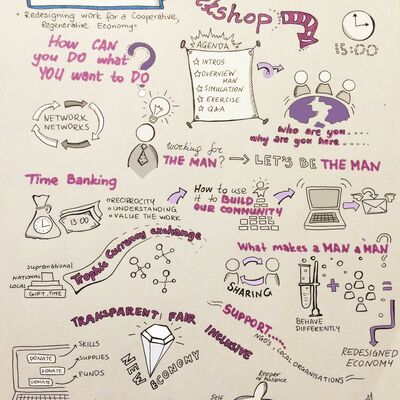 • Redesigning work for a Cooperative,
Regenerative Economy•
15:00
HOW CAN
you DO what
YOU want to DO
AGENDA
☆ INTROS
☆ OVERVIEW
MAN
☆ SIMULATION
☆ EXERCISE
☆ Q&A
NETWORK
NETWORKS
who are you ....
why are you here ....
working for
THE MAN?
→ LET'S BE THE MAN
Time Banking
13:00
○ RECIPROCITY
○ UNDERSTANDING
○ VALUE THE WORK
How to use
it to BUILD
OUR COMMUNITY
Trophic Currency exchange
supranational
NATIONAL
LOCAL
GIFT, TIME
What makes a MAN a MAN
SHARING
BEHAVE
DIFFERENTLY
REDESIGNED
ECONOMY
TRANSPARENT
FAIR
NEW
ECONOMY
SUPPORT.....
INCLUSIVE
NGO's, LOCAL ORGANISATIONS
DONATE
DONATE
DONATE
SKILLS
SUPPLIES
FUNDS
keeper
of balance
Self